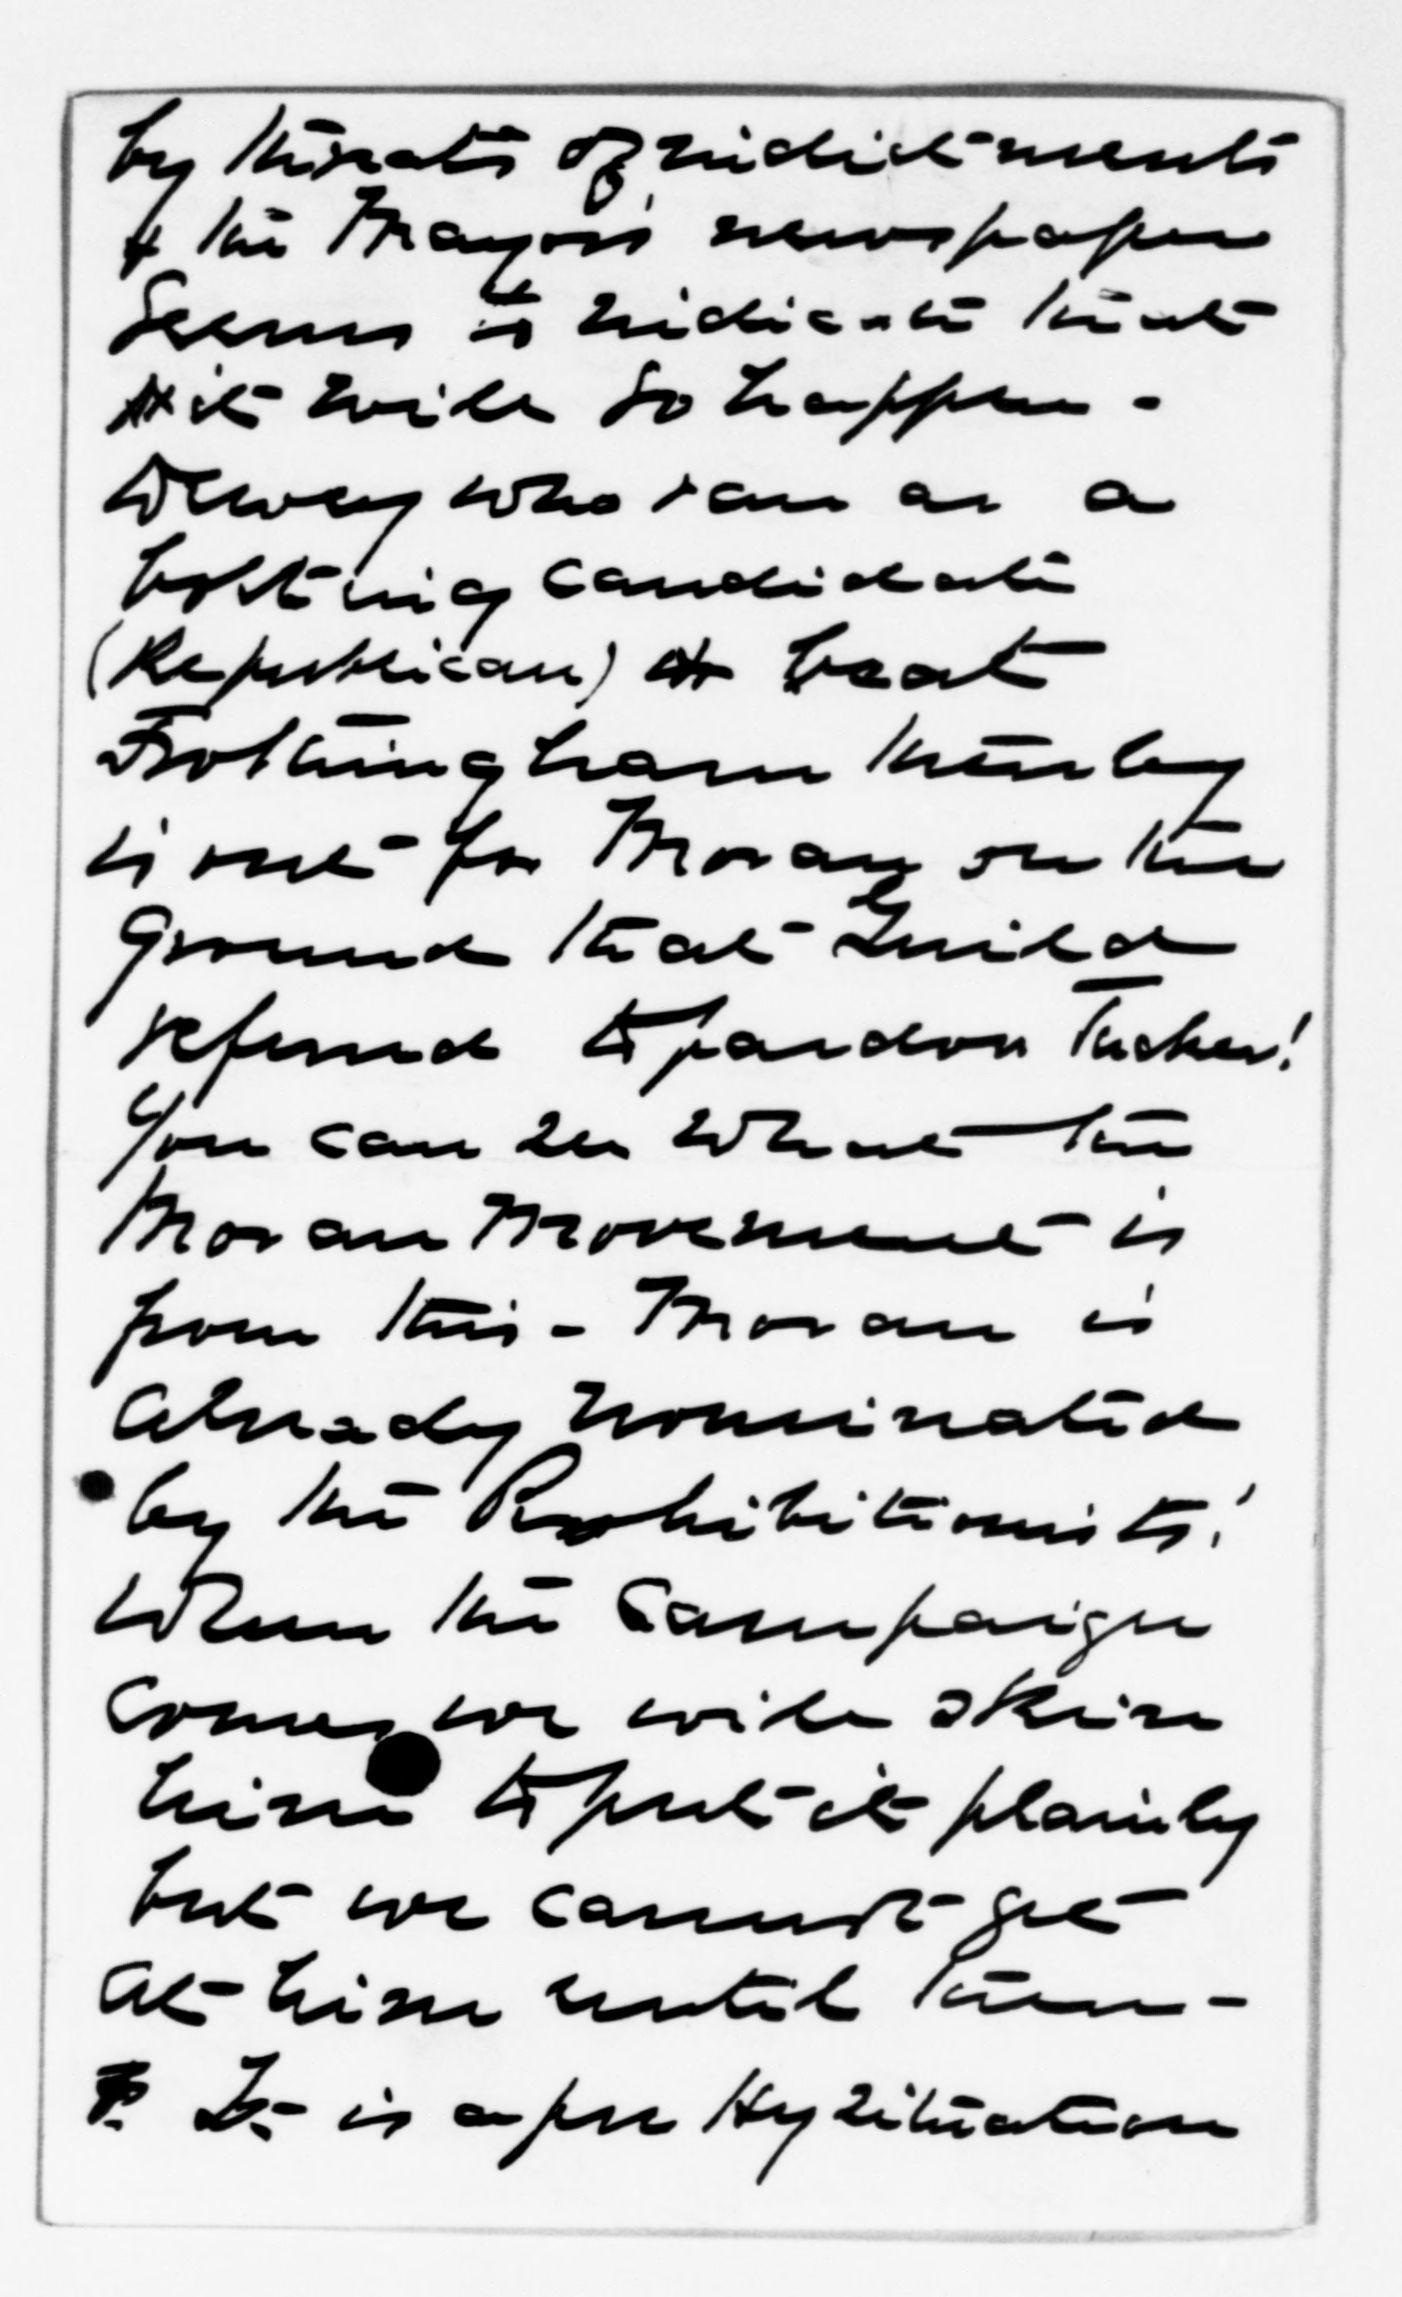 by threats of indictments
& the Mayor's newspaper
seems to indicate that
it will so happen -
Dewey who ran as a
bolting candidate
(Republican) & beat
Frothingham thereby
is out for Moran on the
ground that Guild
refused to pardon Tucker!
You can see what the
Moran Movement is
from this - Moran is
already nominated
by the Prohibitionists!
When the Campaign
comes we will skin
him to put it plainly
but we cannot get
at him until then -
It is a pretty situation